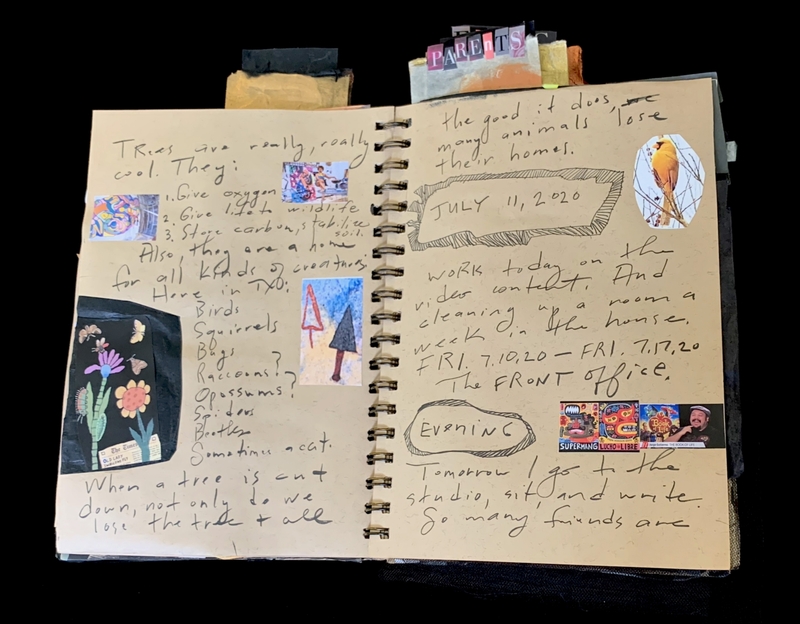 PARENTS
Trees are really, really
cool. They:
1. Give oxygen
2. Give life to wildlife
3. Store carbon, stabilize
soil.
Also, they are a home
for all kinds of creatures.
Here in TX:
Birds
Squirrels
Bugs
Raccoons?
Opossums?
Spiders
Beetles
Sometimes a cat.
When a tree is cut
down, not only do we
lose the tree + all
the good it does,
many animals lose
their homes.
JULY 11, 2020
Work today on the
video content. And
cleaning up a room a
week in the house.
FRI. 7.10.20 – FRI. 7.17.20
The FRONT Office.
Evening
SUPERMANG
LUCHO-LIBRE
Tomorrow I go to the
studio, sit, and write.
So many friends are